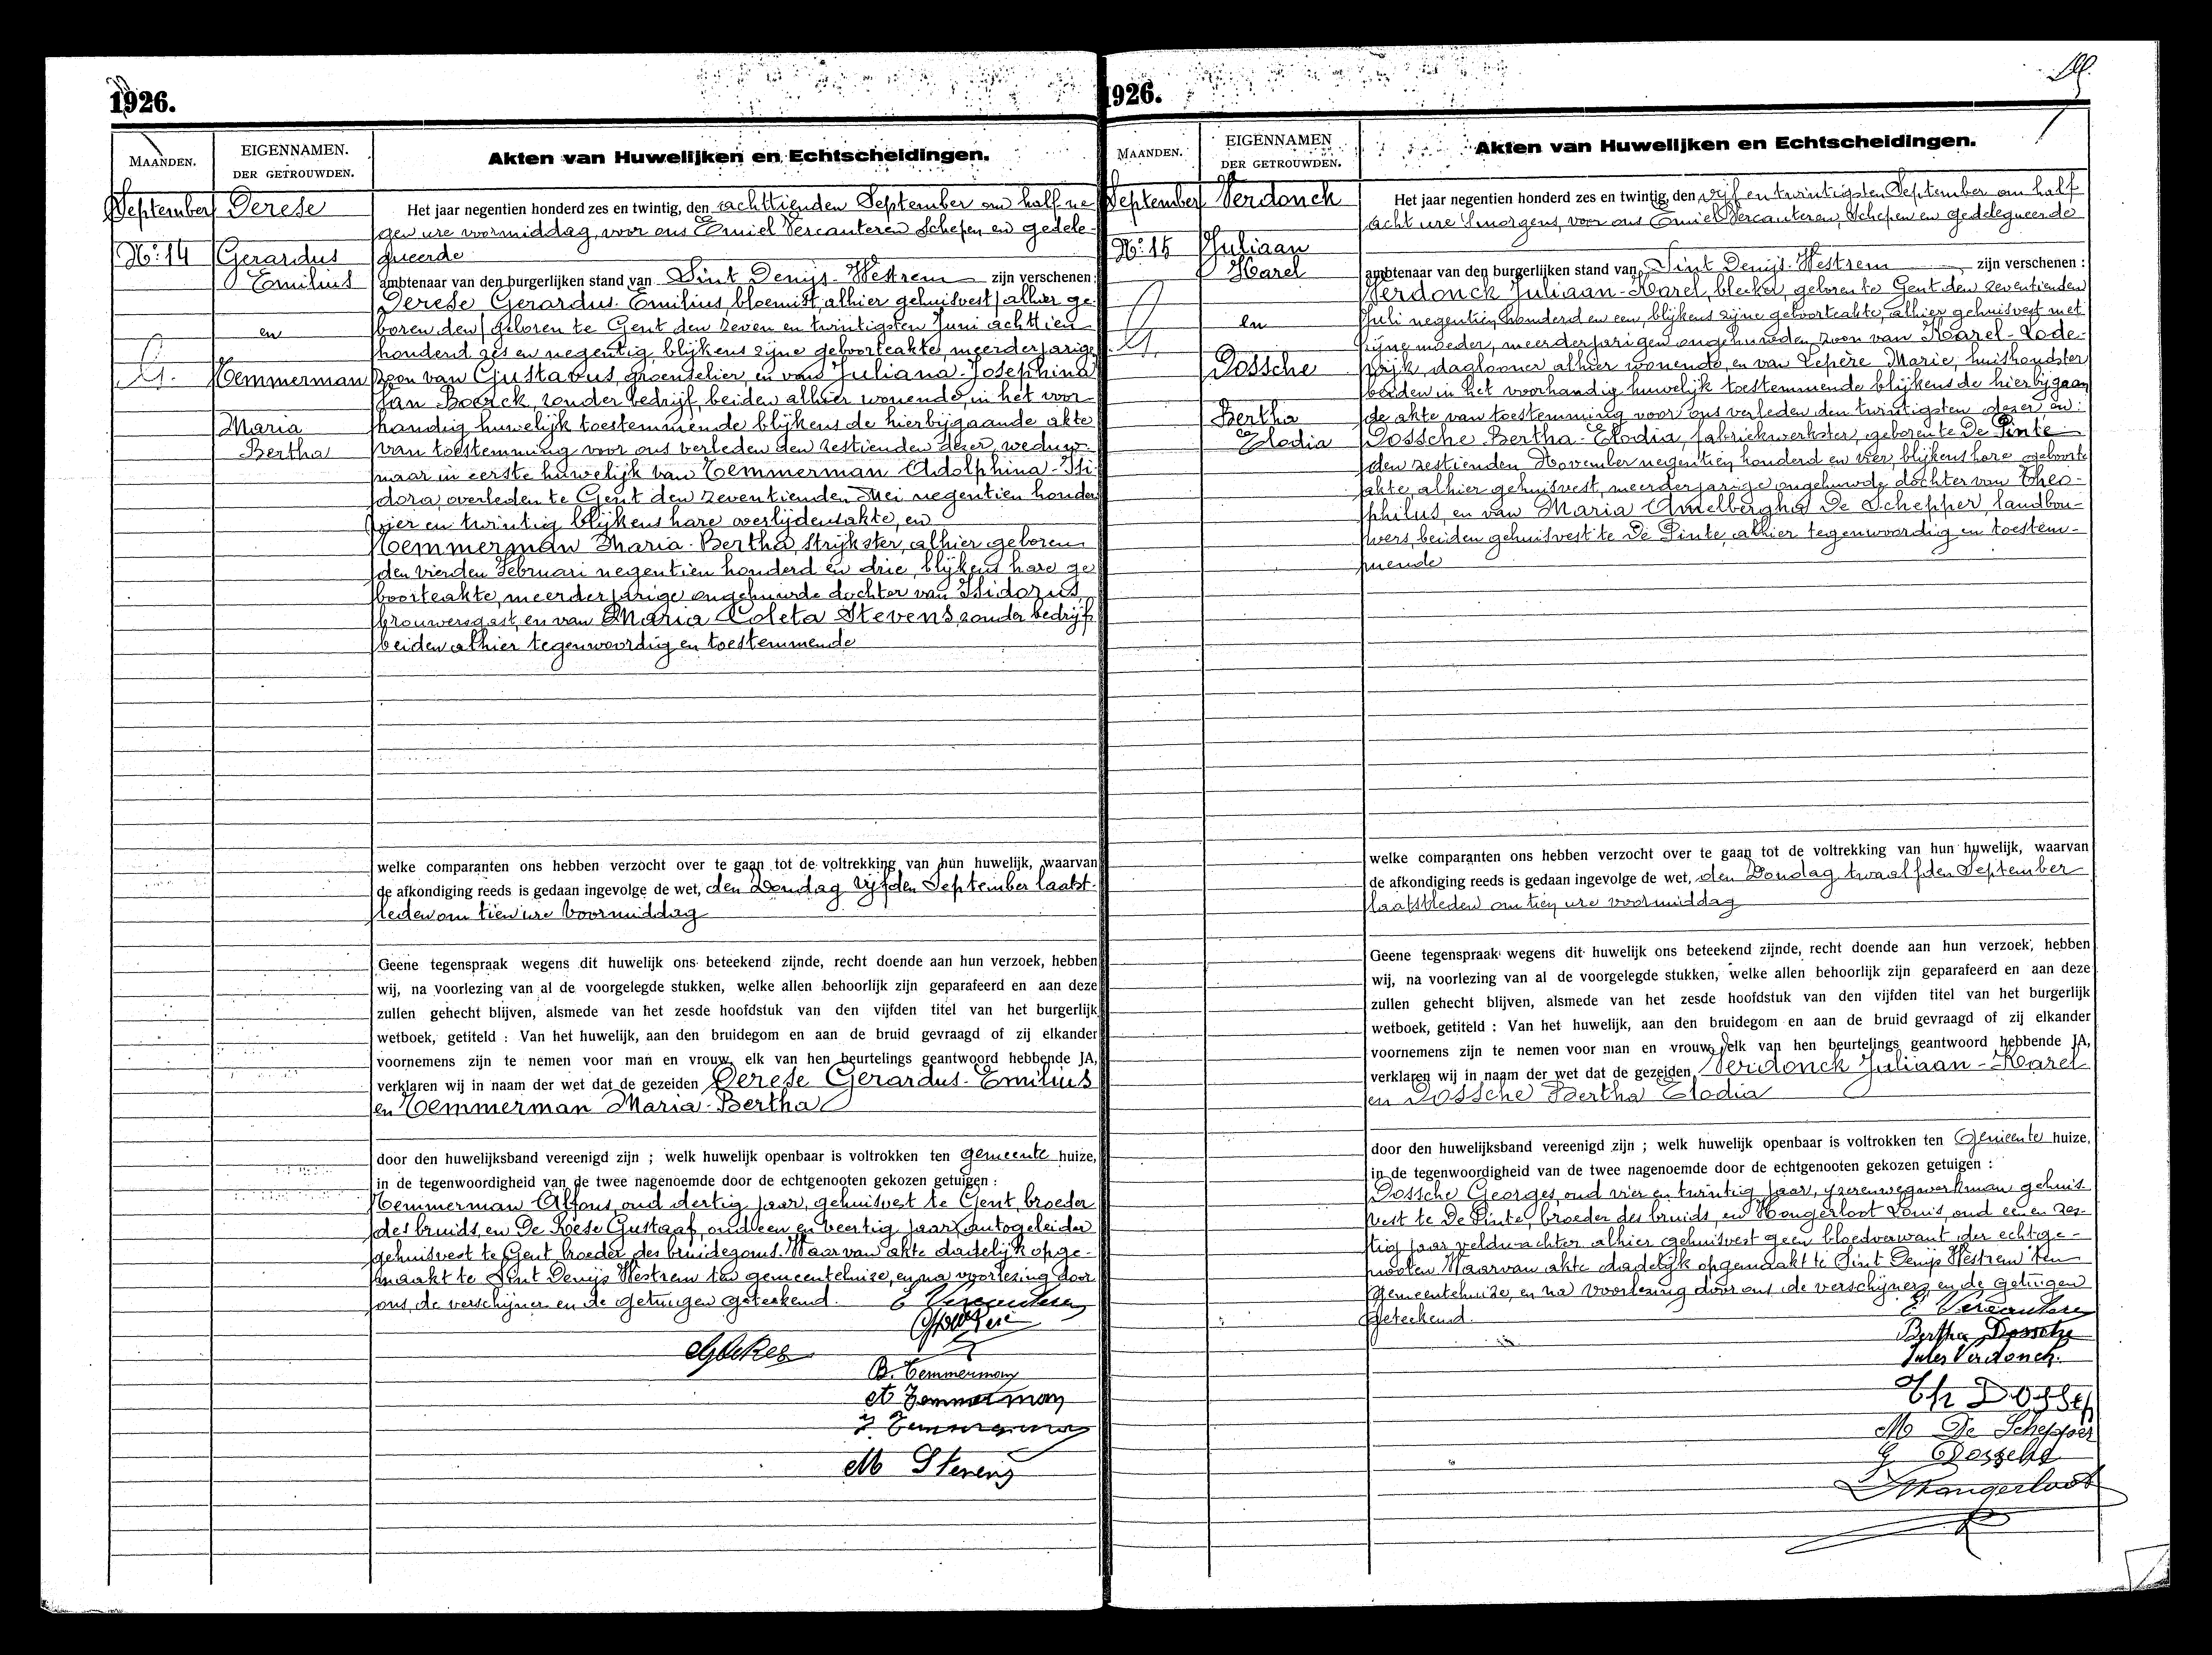 1926.
MAANDEN.
EIGENNAMEN.
DER GETROUWDEN.
Akten van Huwelijken en Echtscheidingen.
September
No: 14
Derese
Gerardus
Emilius
en
Temmerman
Maria
Bertha
Het jaar negentien honderd zes en twintig, den achttienden September om half ne-
gen ure voormiddag, voor ons Emiel Vercauteren Schepen en gedele-
gueerde
ambtenaar van den burgerlijken stand van Sint Denijs-Westrem zijn verschenen:
Derese Gerardus-Emilius, bloemist, alhier gehuisvest / alhier ge-
boren den / geboren te Gent den zeven en twintigsten Juni achttien
honderd zes en negentig, blijkens zijne geboorteakte, meerderjarige
zoon van Gustavus, groenselier, en van Juliana-Josephina
Van Boerck, zonder bedrijf, beiden alhier wonende, in het voor-
handig huwelijk toestemmende blijkens de hierbijgaande akte
van toestemming voor ons verleden den zestienden dezer, weduw-
naar in eerste huwelijk van Temmerman Adolphina-Isi-
dora, overleden te Gent den zeventienden Mei negentien honderd
vier en twintig blijkens hare overlijdensakte, en
Temmerman Maria-Bertha, strijkster, alhier geboren
den vierden Februari negentien honderd en drie, blijkens hare ge-
boorteakte, meerderjarige ongehuwde dochter van Isidorus,
brouwersgast, en van Maria Coleta Stevens, zonder bedrijf
beiden alhier tegenwoordig en toestemmende
welke comparanten ons hebben verzocht over te gaan tot de voltrekking van hun huwelijk, waarvan
de afkondiging reeds is gedaan ingevolge de wet, den Zondag vijfden September laatst-
leden om tien ure voormiddag
Geene tegenspraak wegens dit huwelijk ons beteekend zijnde, recht doende aan hun verzoek, hebben
wij, na voorlezing van al de voorgelegde stukken, welke allen behoorlijk zijn geparafeerd en aan deze
zullen gehecht blijven, alsmede van het zesde hoofdstuk van den vijfden titel van het burgerlijk
wetboek, getiteld : Van het huwelijk, aan den bruidegom en aan de bruid gevraagd of zij elkander
voornemens zijn te nemen voor man en vrouw, elk van hen beurtelings geantwoord hebbende JA,
verklaren wij in naam der wet dat de gezeiden Derese Gerardus-Emilius
en Temmerman Maria-Bertha
door den huwelijksband vereenigd zijn ; welk huwelijk openbaar is voltrokken ten gemeente huize,
in de tegenwoordigheid van de twee nagenoemde door de echtgenooten gekozen getuigen :
Temmerman Alfons, oud dertig jaar, gehuisvest te Gent, broeder
des bruids, en De Reese Gustaaf, oud een en veertig jaar, autogeleider
gehuisvest te Gent broeder des bruidegoms. Waarvan akte dadelijk opge-
maakt te Sint Denijs Westrem ten gemeentehuize, en na voorlezing door
ons, de verschijner en de getuigen geteekend. E Vercauteren
B. Temmerman
A Temmerman
I. Temmerman
M Stevens
1926.
MAANDEN.
EIGENNAMEN
DER GETROUWDEN.
Akten van Huwelijken en Echtscheidingen.
September
No: 15
Verdonck
Juliaan
Karel
en
Dossche
Bertha
Elodia
Het jaar negentien honderd zes en twintig, den vijf en twintigsten September om half
acht ure 's morgens, voor ons Emiel Vercauteren, Schepen en gedelegueerde
ambtenaar van den burgerlijken stand van Sint Denijs-Westrem zijn verschenen :
Verdonck Juliaan-Karel, bleeker, geboren te Gent den zeventienden
Juli negentien honderd en een, blijkens zijne geboorteakte, alhier gehuisvest met
zijne moeder, meerderjarigen ongehuwden zoon van Karel-Lode-
wijk, daglooner alhier wonende, en van Lepère Marie, huishoudster
beiden in het voorhandig huwelijk toestemmende blijkens de hierbijgaan-
de akte van toestemming voor ons verleden den twintigsten dezer en:
Dossche Bertha-Elodia, fabriekwerkster, geboren te De Pinte
den zestienden November negentien honderd en vier, blijkens hare geboorte
akte, alhier gehuisvest, meerderjarige ongehuwde dochter van Theo-
philus, en van Maria Amelbergha De Schepper, landbou-
wers, beiden gehuisvest te De Pinte, alhier tegenwoordig en toestem-
mende
welke comparanten ons hebben verzocht over te gaan tot de voltrekking van hun huwelijk, waarvan
de afkondiging reeds is gedaan ingevolge de wet, den Zondag twaalfden September
laatstleden om tien ure voormiddag
Geene tegenspraak wegens dit huwelijk ons beteekend zijnde, recht doende aan hun verzoek, hebben
wij, na voorlezing van al de voorgelegde stukken, welke allen behoorlijk zijn geparafeerd en aan deze
zullen gehecht blijven, alsmede van het zesde hoofdstuk van den vijfden titel van het burgerlijk
wetboek, getiteld : Van het huwelijk, aan den bruidegom en aan de bruid gevraagd of zij elkander
voornemens zijn te nemen voor man en vrouw, elk van hen beurtelings geantwoord hebbende JA,
verklaren wij in naam der wet dat de gezeiden Verdonck Juliaan-Karel
en Dossche Bertha Elodia
door den huwelijksband vereenigd zijn ; welk huwelijk openbaar is voltrokken ten Gemeente huize,
in de tegenwoordigheid van de twee nagenoemde door de echtgenooten gekozen getuigen :
Dossche Georges, oud vier en twintig jaar, yzerenwegwerkman gehuis-
vest te De Pinte, broeder des bruids, en Hongerloot Louis, oud een en zes-
tig jaar veldwachter alhier gehuisvest geen bloedverwant der echtge-
nooten Waarvan akte dadelijk opgemaakt te Sint Denijs Westrem ten
Gemeentehuize, en na voorlezing door ons de verschijners en de getuigen
geteekend.
E Vercauteren
Bertha Dossche
Jules Verdonck.
Th Dossch
M De Schepper
G Dossche
L Hongerloot